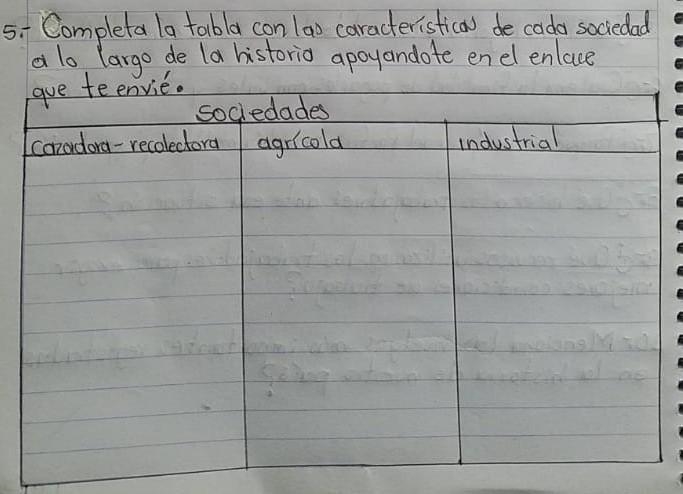 5.- Completa la tabla con las características de cada sociedad
a lo largo de la historia apoyandote en el enlace
que te envié.
sociedades
cazadora-recolectora agrícola industrial